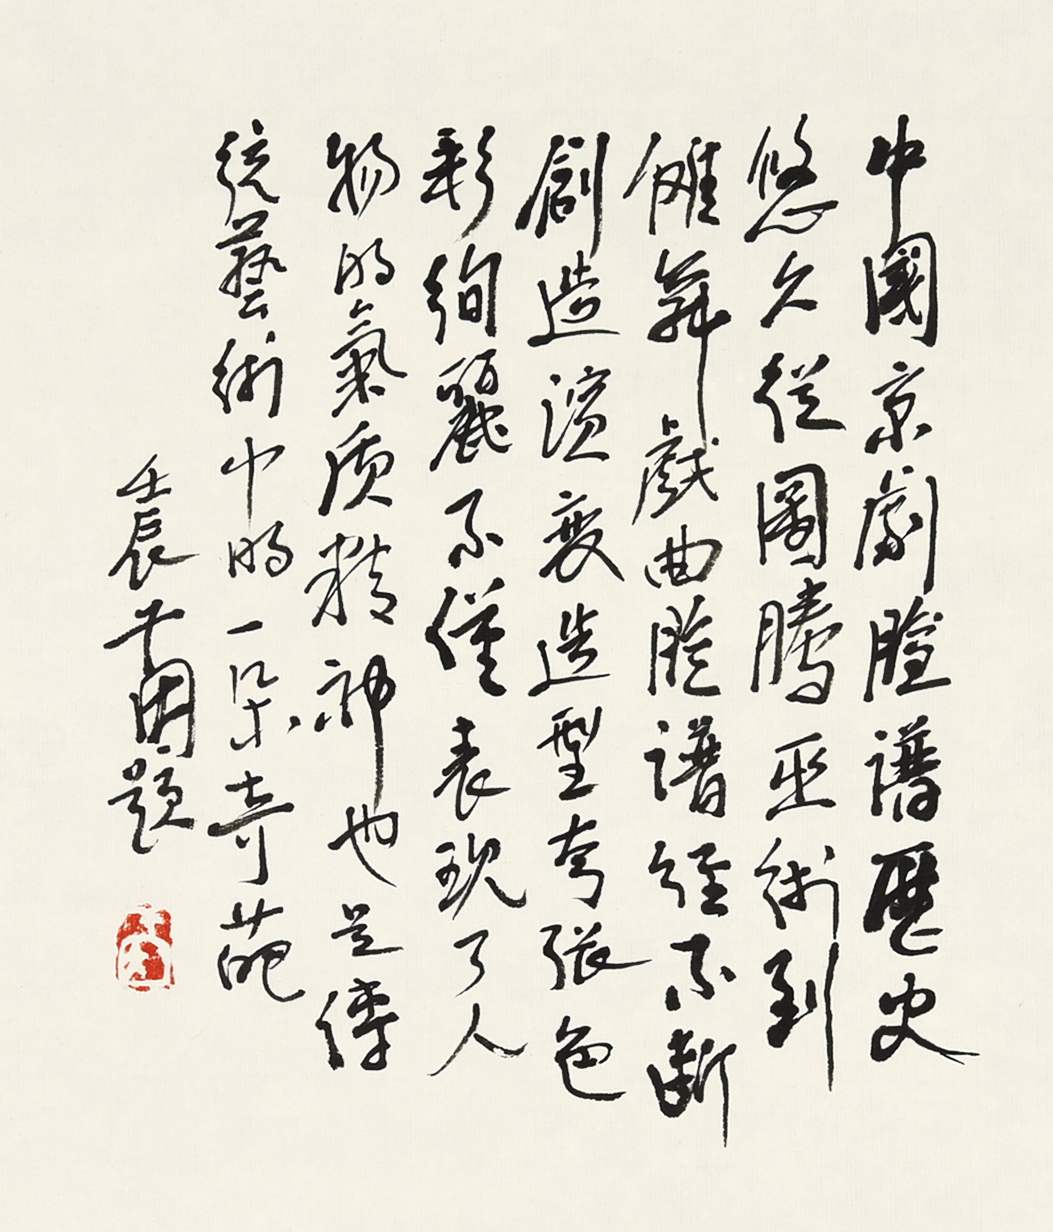 中國京劇臉譜歷史
悠久從圖騰巫術到
儺舞戲曲臉譜經不斷
創造演變造型夸張色
彩絢麗不僅表现了人
物的氣质精神也是傳
統藝術中的一朵奇葩
壬辰 題